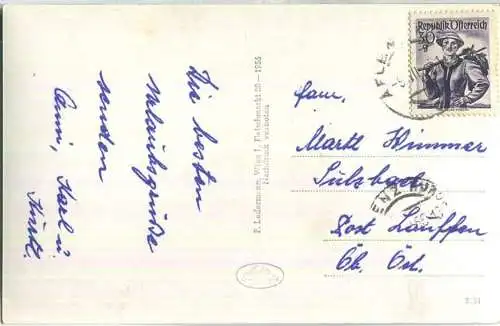 Die besten
Urlaubsgrüße
senden
Anni, Karl u.
F. Ledermann, Wien I, Fleischmarkt 20 - 1955
Nachdruck verboten
Republik Österreich
30
g
AFLE
Fam.
Martl Wimmer
Sulzbach
Post Lauffen
Ob. Öst.